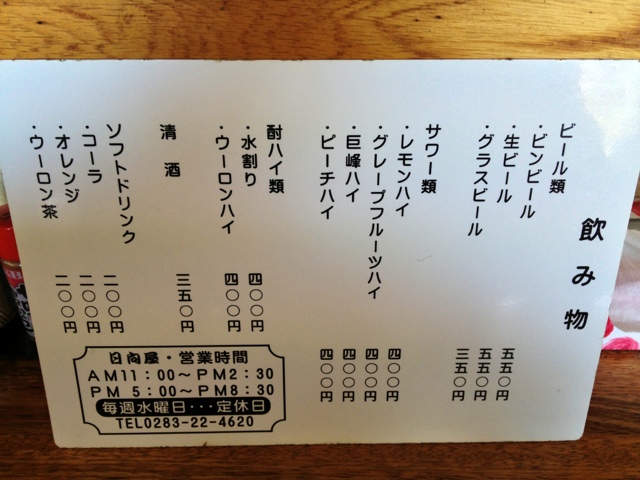 飲み物
ビール類
・ビンビール 五五〇円
・生ビール 五五〇円
・グラスビール 三五〇円
サワー類
・レモンハイ 四〇〇円
・グレープフルーツハイ 四〇〇円
・巨峰ハイ 四〇〇円
・ピーチハイ 四〇〇円
酎ハイ類
・水割り 四〇〇円
・ウーロンハイ 四〇〇円
清酒 三五〇円
ソフトドリンク
・コーラ 二〇〇円
・オレンジ 二〇〇円
・ウーロン茶 二〇〇円
日向屋・営業時間
AM11:00～PM2:30
PM 5:00～PM8:30
毎週水曜日・・・定休日
TEL0283-22-4620